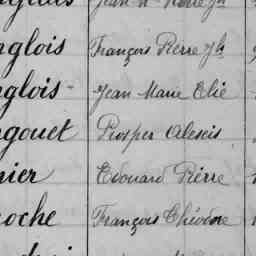 nglois François Pierre
nglois Jean Marie Elie
ngouet Prosper Alexis
nier Edouard Pierre
oche François